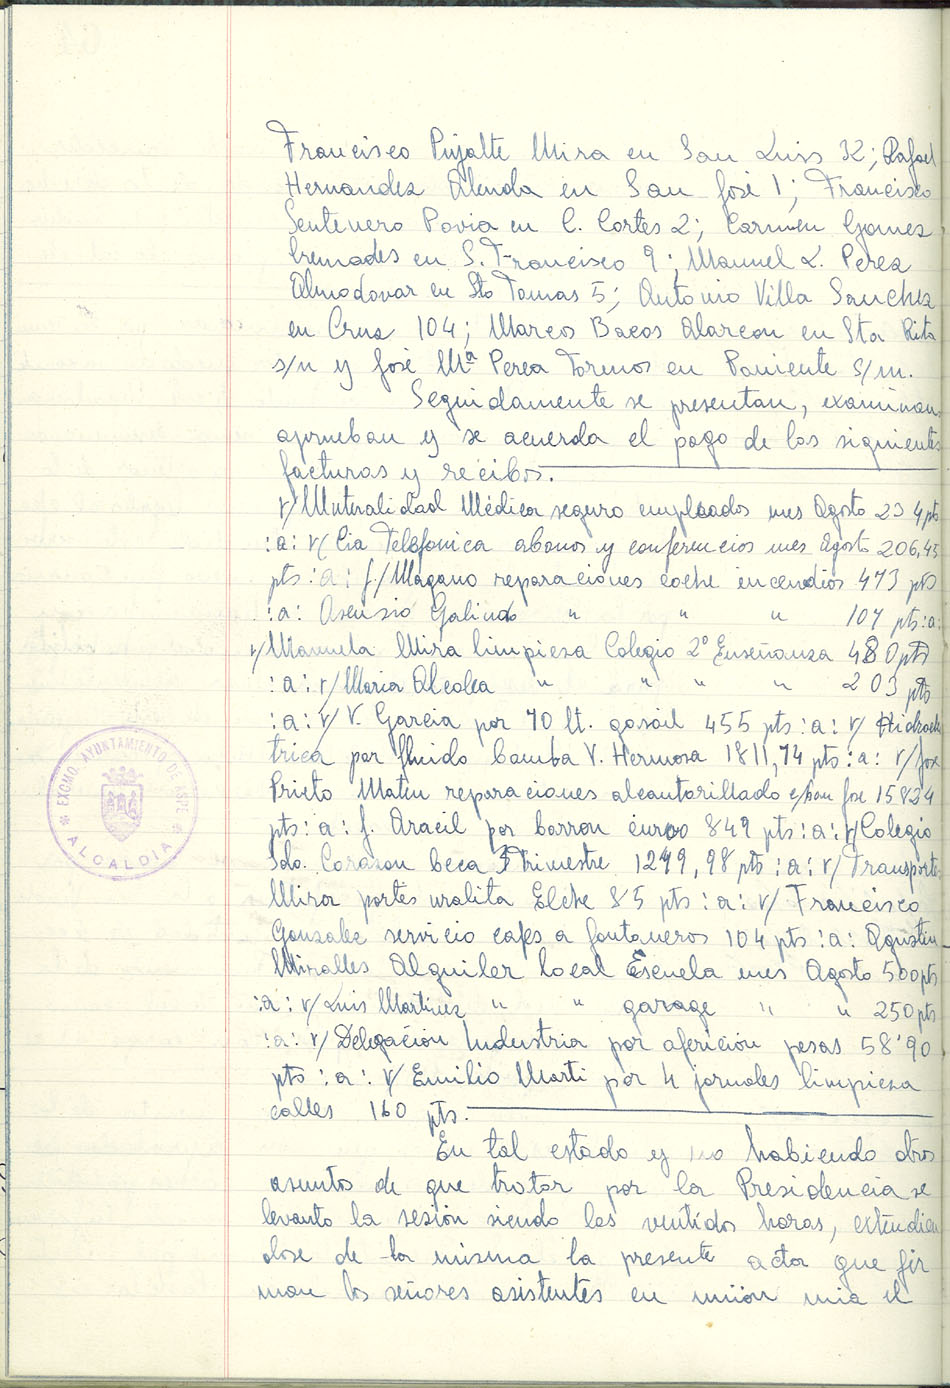 Francisco Pujalte Mira en San Luis 32; Rafael
Hernandez Alenda en San José 1; Francisco
Sentenero Pavia en C. Cortes 2; Carmen Gomez
Cremades en S. Francisco 9; Manuel L. Perez
Almodovar en Sto Tomas 5; Antonio Villa Sanchez
en Cruz 104; Marcos Bacos Alarcon en Sta Rita
s/n y José Mª Perea Tormos en Poniente S/m.
Seguidamente se presentan, examinan
aprueban y se acuerda el pago de los siguientes
facturas y recibos.
r/ Mutualidad Médica seguro empleados mes Agosto 234 pts
:a: r/ Cia Telefonica abonos y conferencias mes Agosto 206,45
pts :a: f./ Magano reparaciones coche incendios 473 pts
:a: Asensio Galindo " " " 107 pts :a:
r/ Manuela Mira limpieza Colegio 2º Enseñanza 480 pts
:a: r/ Maria Alcolea " " " " 203 pts
:a: r/ V. Garcia por 70 lt. gasoil 455 pts :a: r/ Hidroelec
trica por fluido bomba V. Hermosa 1811,74 pts :a: r/ Jose
Prieto Mateu reparaciones alcantarillado c/San Jose 15824
pts :a: f. Aracil por barron euroo 849 pts :a: r/ Colegio
Sdo. Corazon beca 3 Trimestre 1249,98 pts :a: r/ Transportes
Mira portes uralita Elche 85 pts :a: r/ Francisco
Gonzalez servicio cafes a fontaneros 104 pts :a: Agustin
Miralles Alquiler local Escuela mes Agosto 500 pts
:a: r/ Luis Martinez " " garage " " 250 pts
:a: r/ Delegación Industria por aferición pesas 58'90
pts :a: r/ Emilio Marti por 4 jornales limpieza
calles 160 pts.
En tal estado y no habiendo otros
asuntos de que tratar por la Presidencia se
levanto la sesión siendo las ventidos horas, extendien
dose de la misma la presente acta que fir
man los señores asistentes en unión mia el
EXCMO. AYUNTAMIENTO DE ASPE
* ALCALDIA *